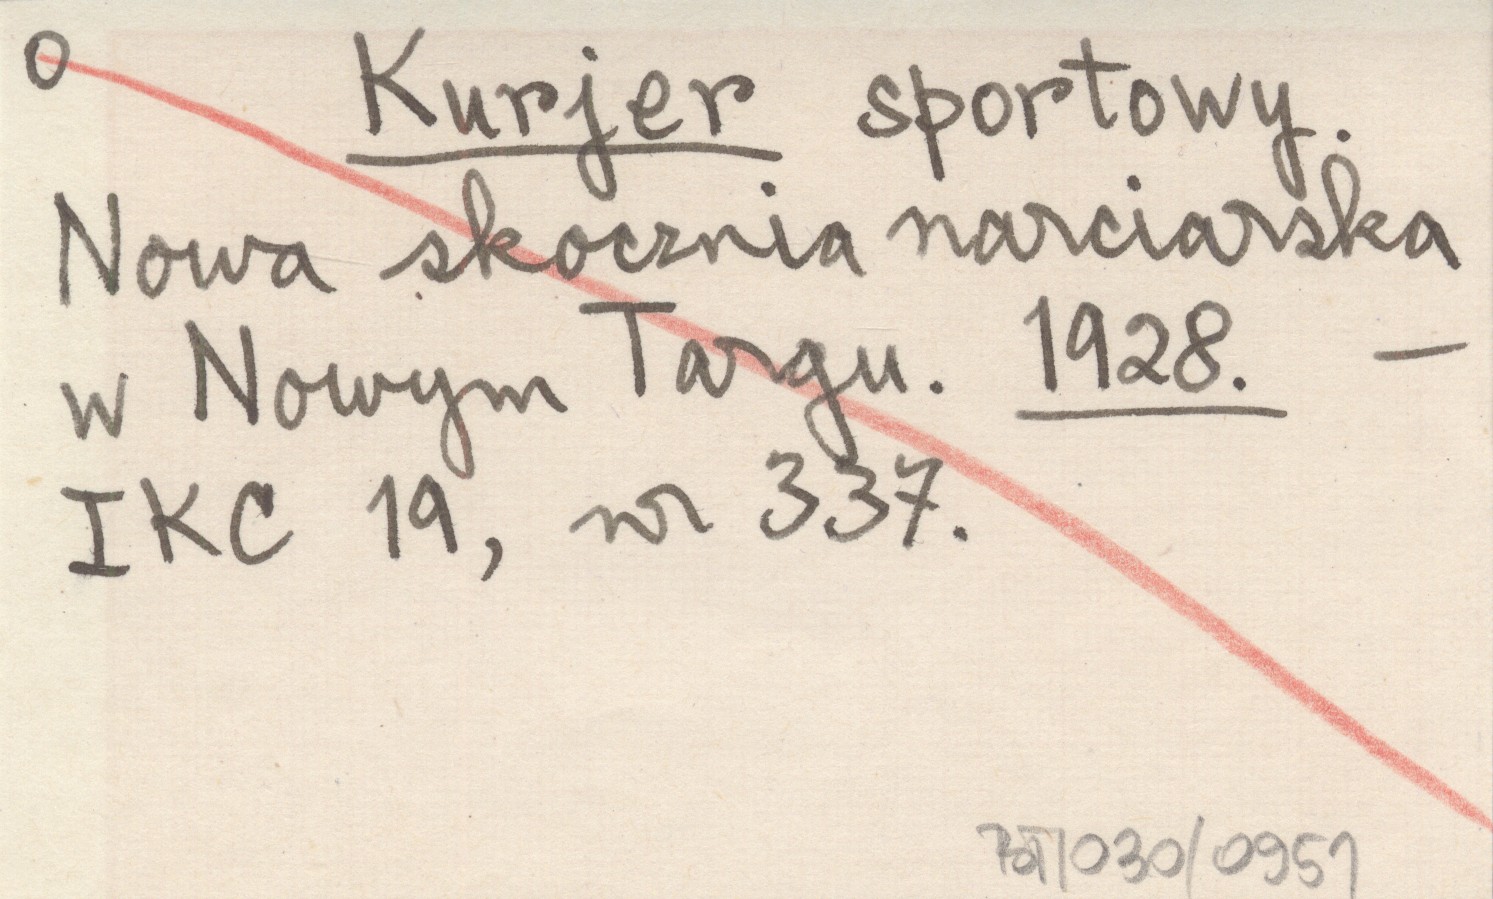 o Kurjer sportowy.
Nowa skocznia narciarska
w Nowym Targu. 1928. —
IKC 19, nr 337.
/030/0951